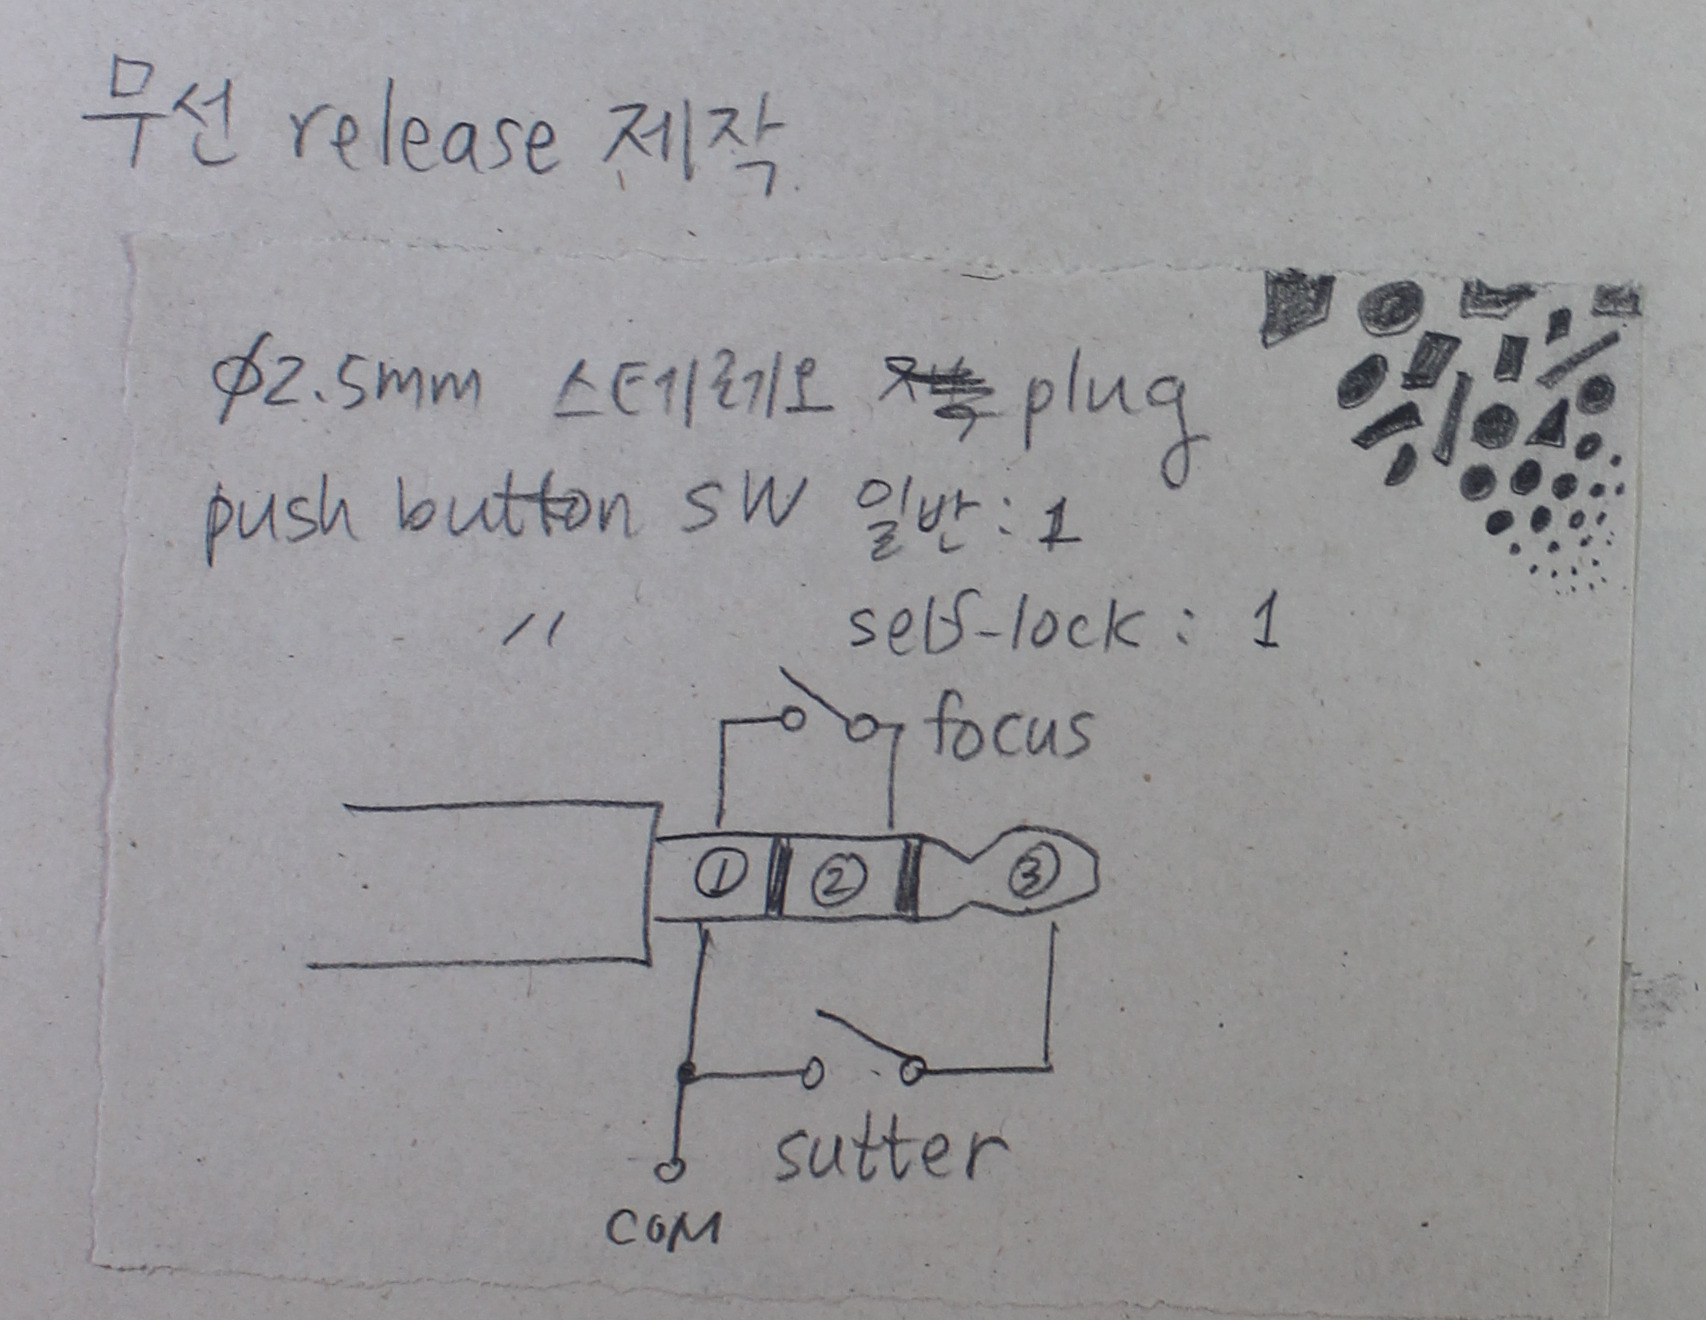 무선 release 제작
φ2.5mm 스테레오 plug
push button SW 일반 : 1
〃 self-lock : 1
focus
① ② ③
sutter
COM